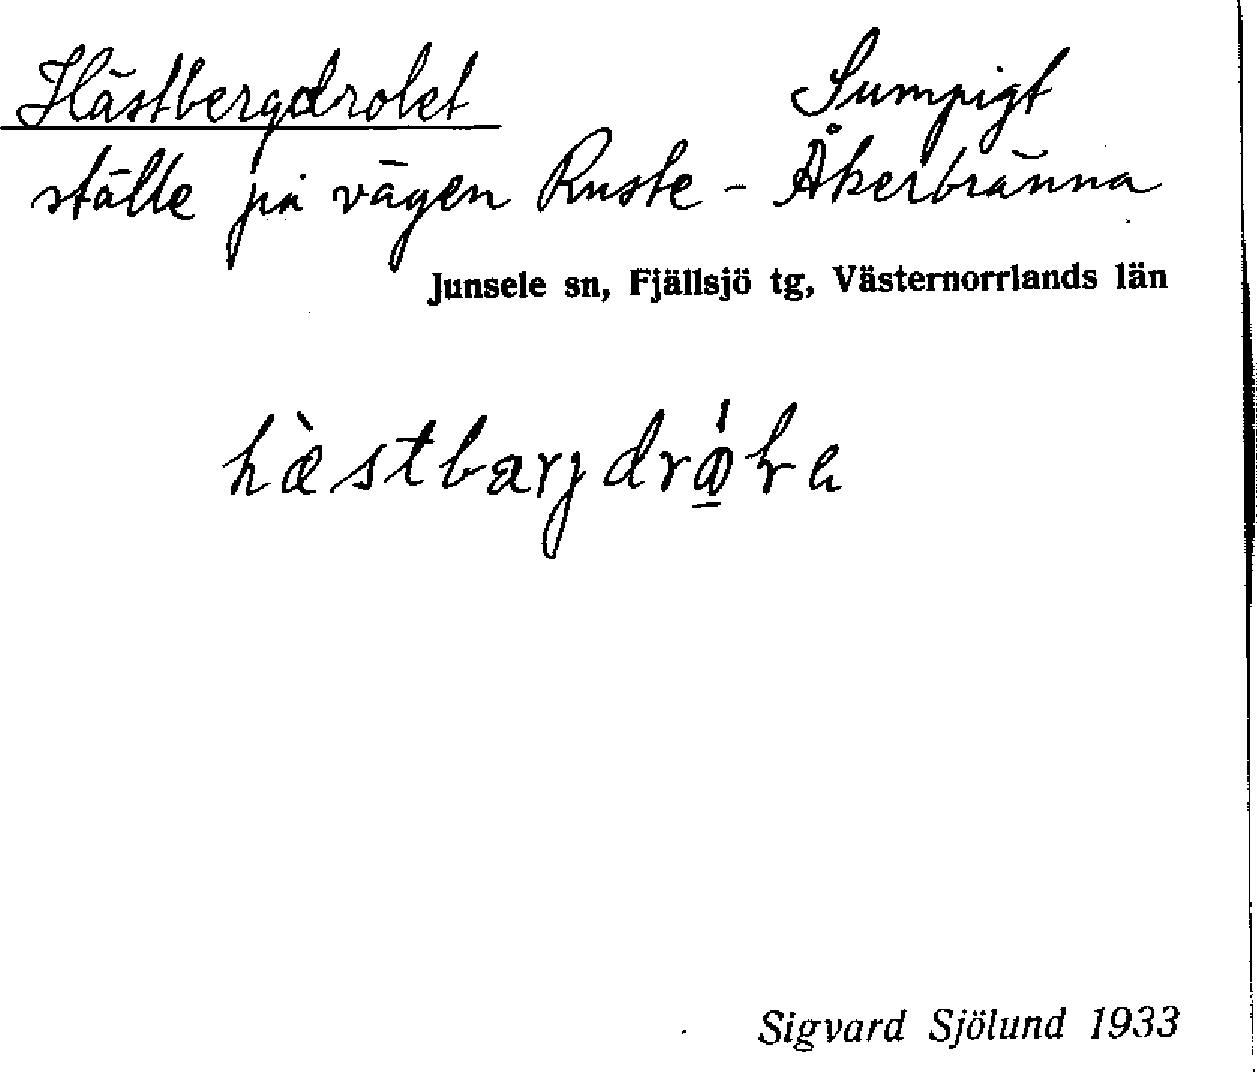 Hästbergdrolet Sumpigt
ställe på vägen Ruske - Åkerbränna
Junsele sn, Fjällsjö tg, Västernorrlands län
Sigvard Sjölund 1933